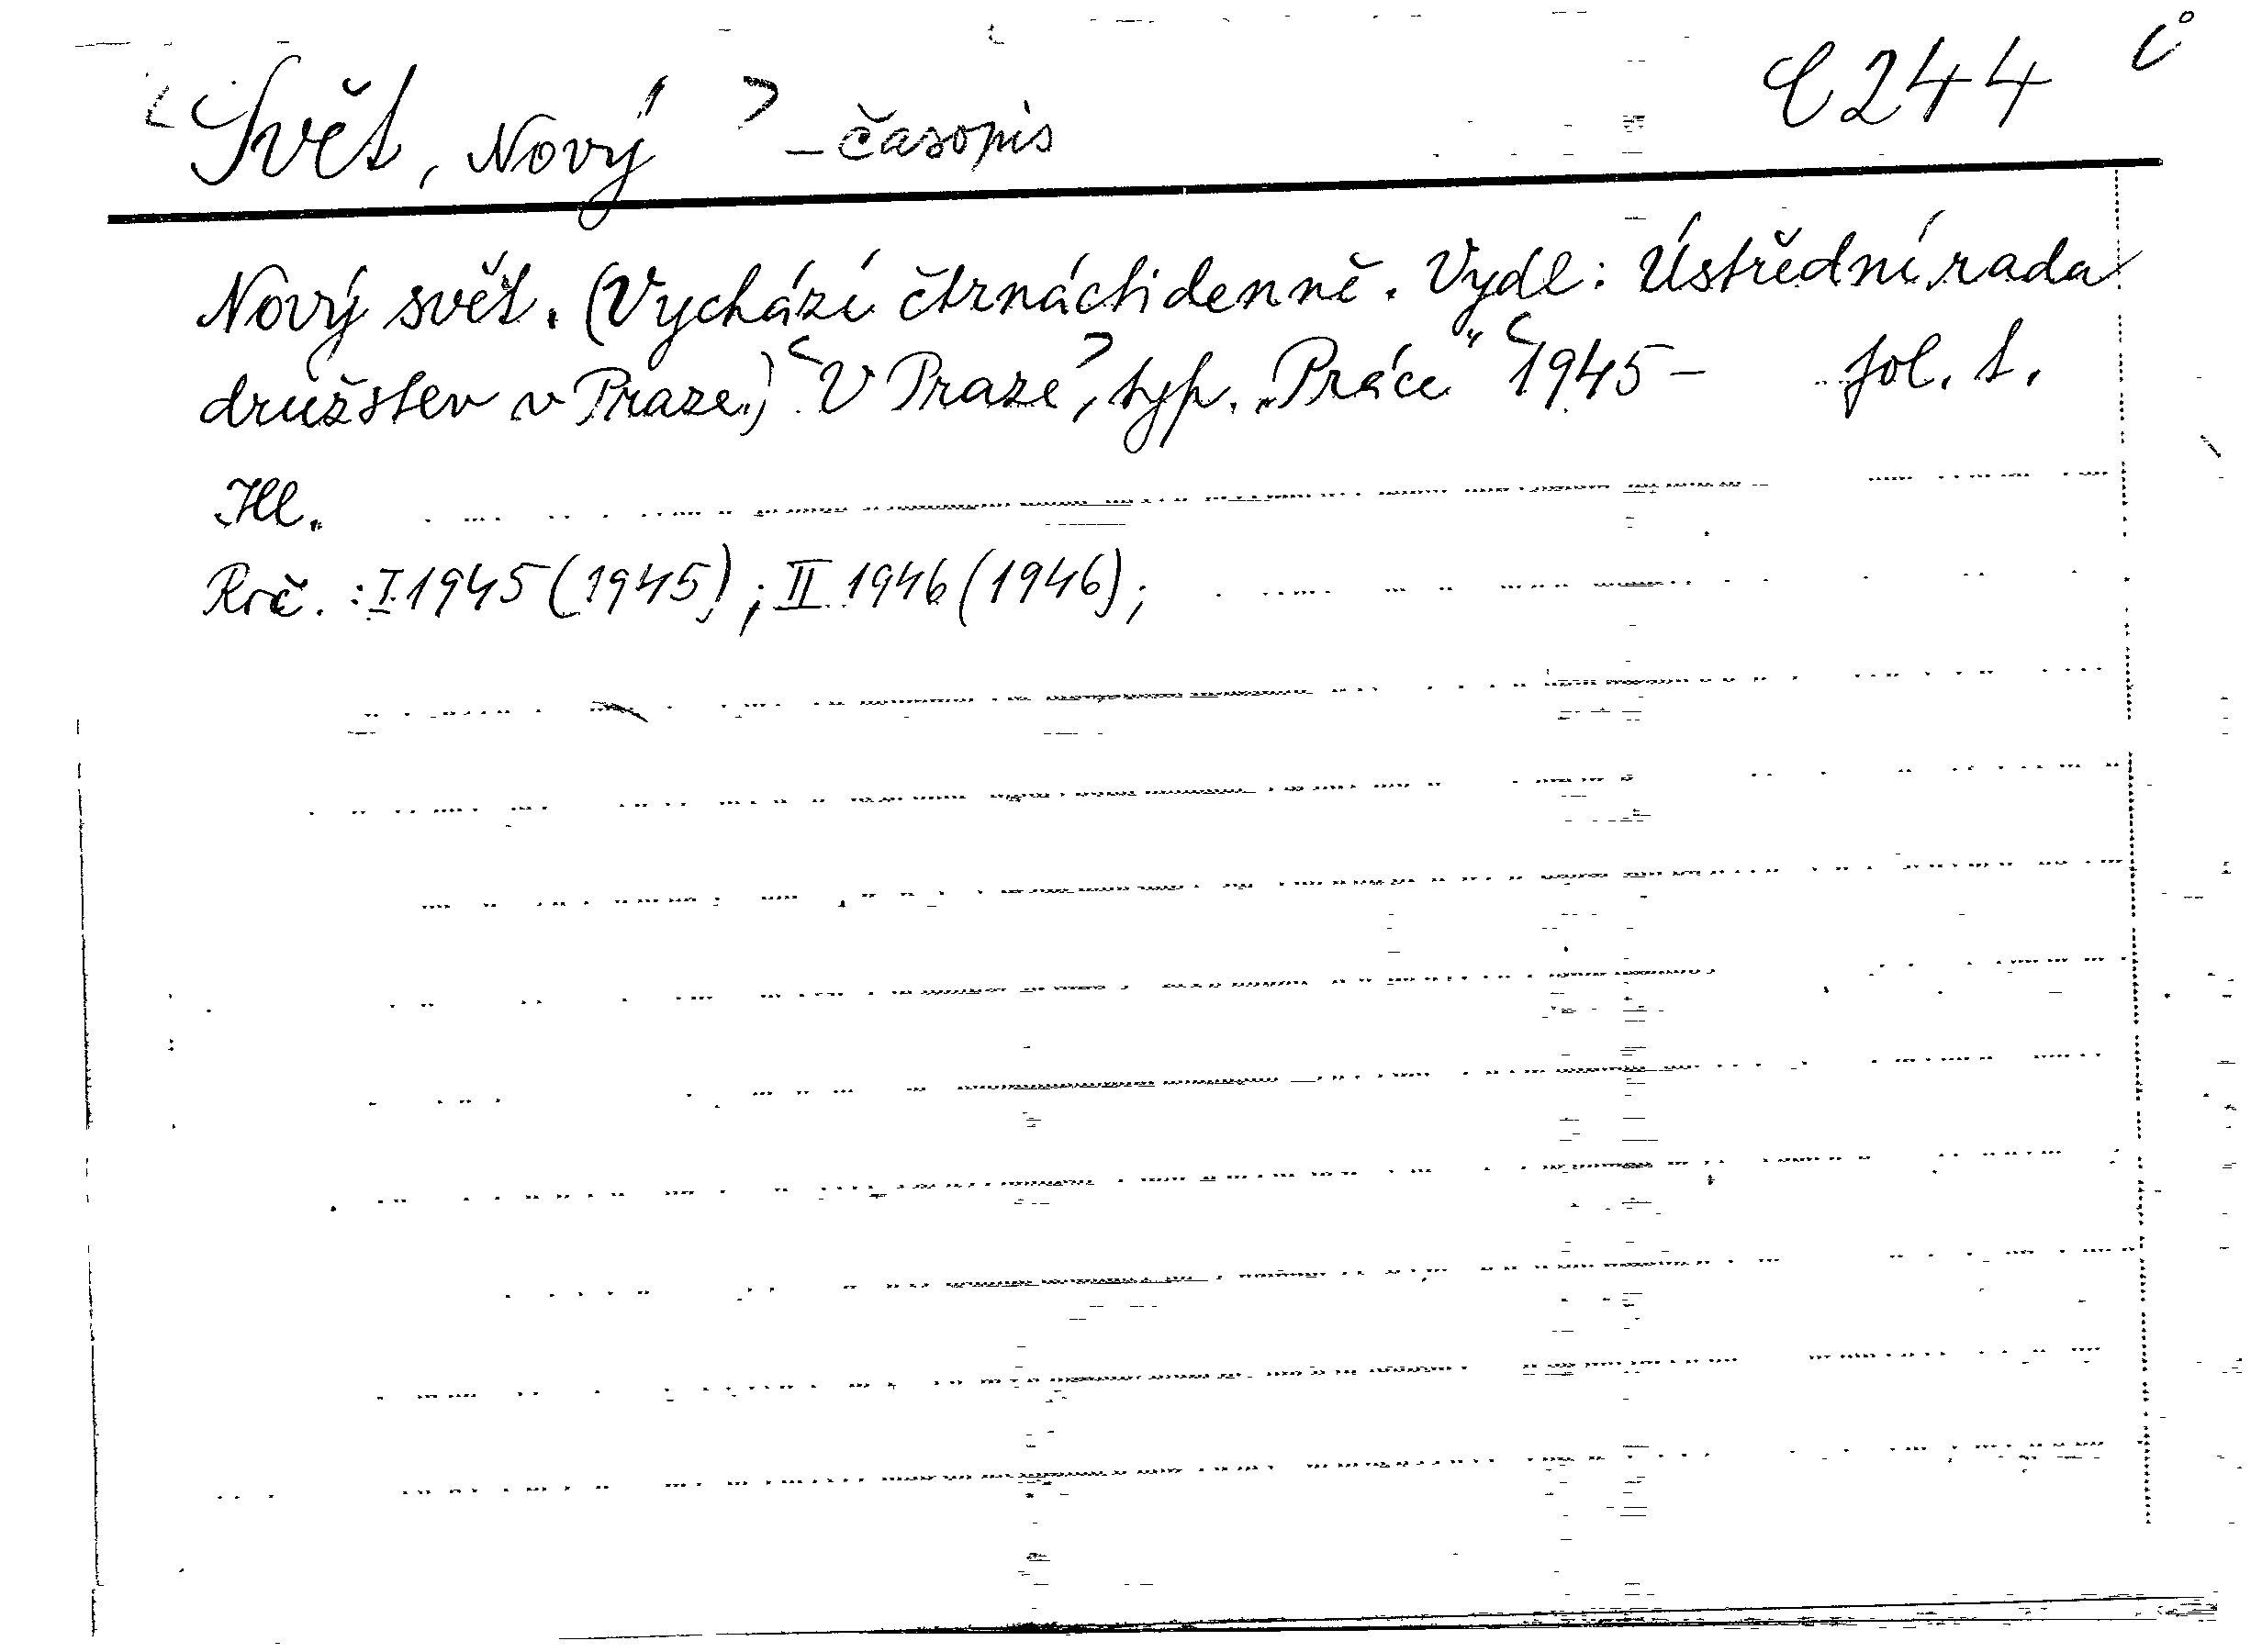 <Svět, Nový> – časopis C 244
Nový svět. (Vychází čtrnáctidenně. Vydl: Ústřední rada
družstev v Praze.) <V Praze>, typ. „Práce“ <1945 – fol. t.
Ill.
Roč. : I 1945 (1945) ; II 1946 (1946) ;